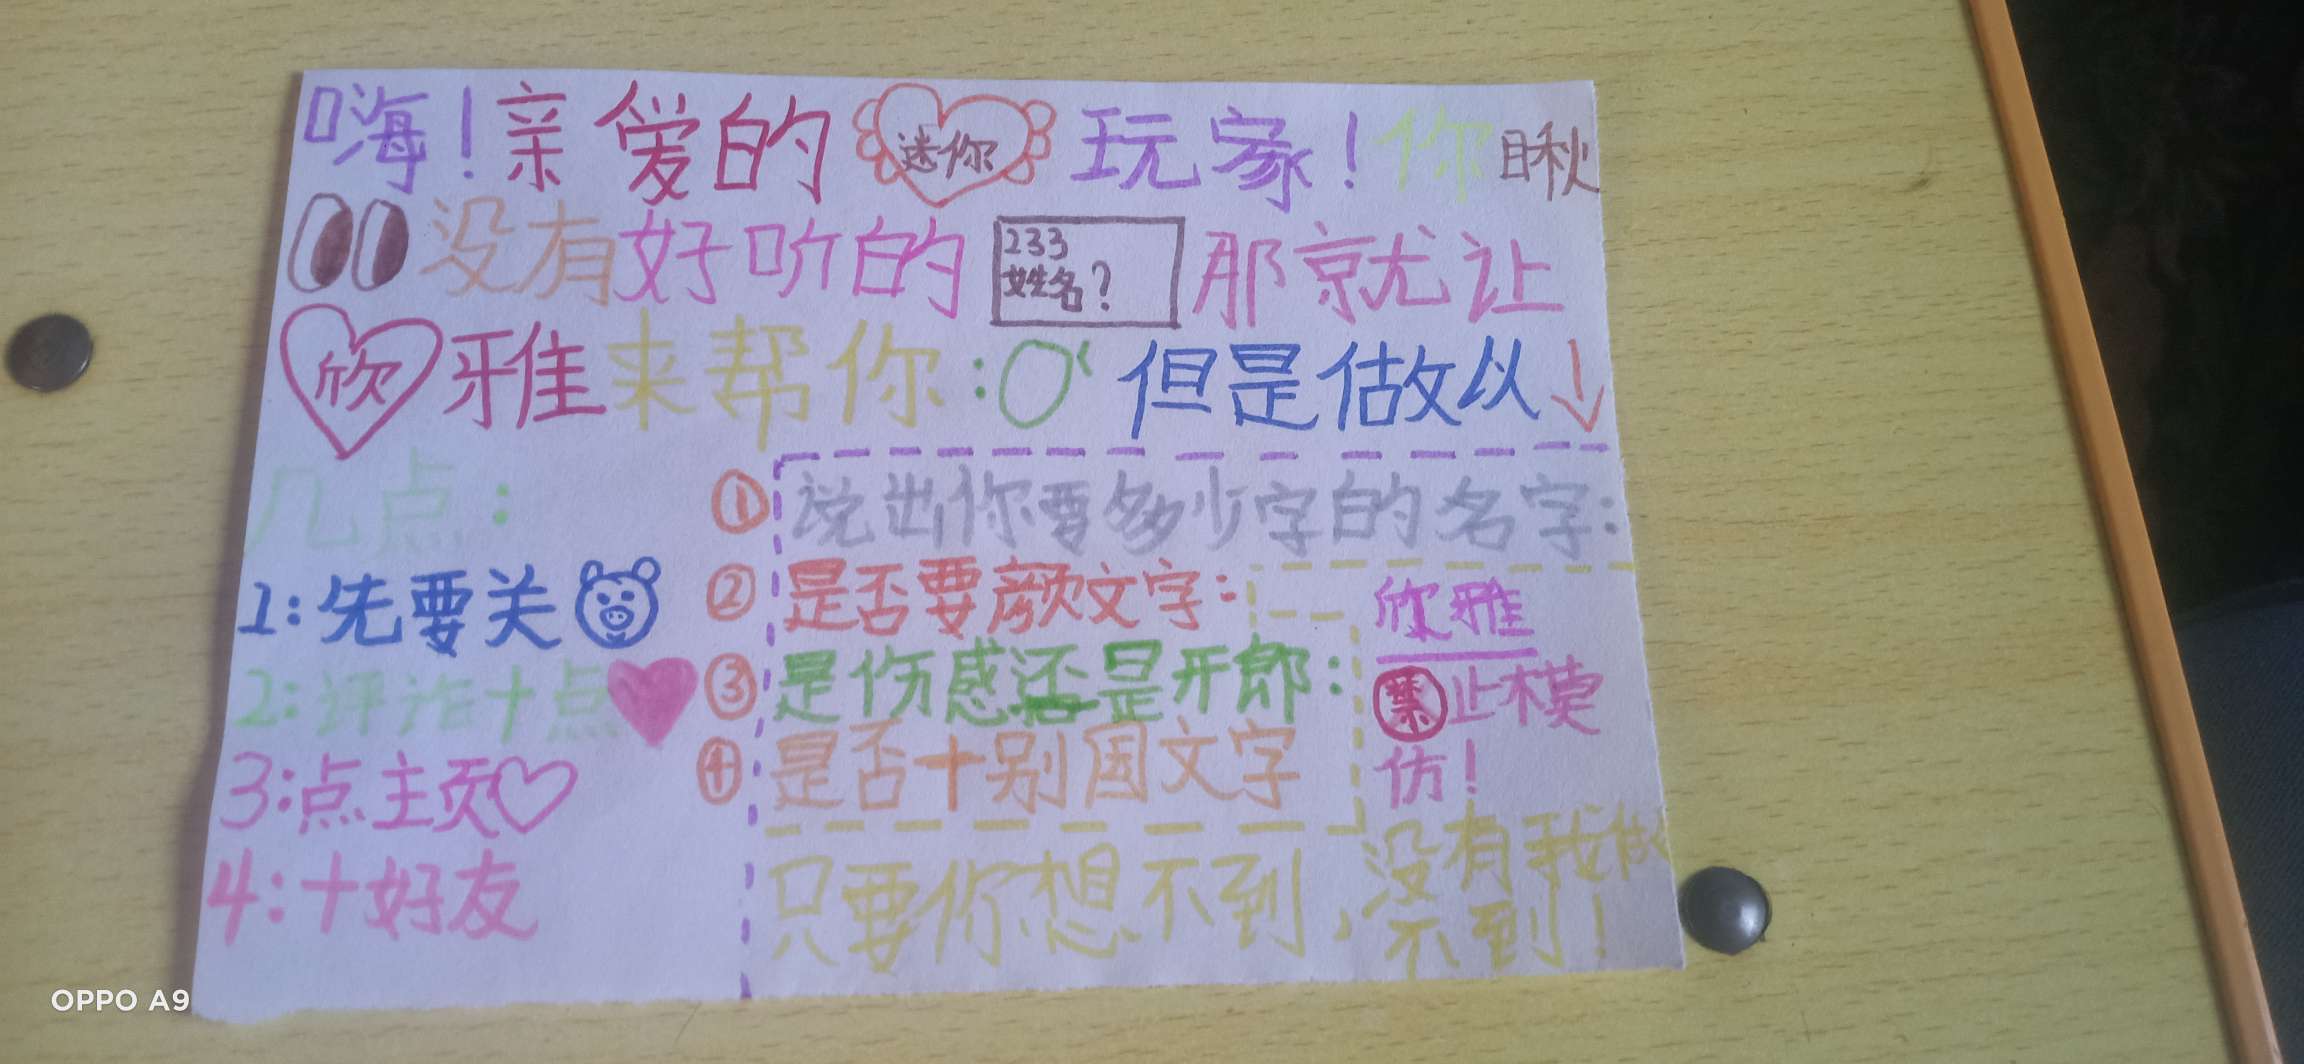 嗨!亲爱的迷你玩家!你瞅
没有好听的 233 姓名? 那就让
欣雅来帮你: 但是做以↓
几点:
1:先要关
2:评论+点
3:点主页♡
4:+好友
①说出你要多少字的名字:
②是否要颜文字:
③是伤感还是开郎:
④是否+别国文字
欣雅
禁止模
仿!
只要你想不到,没有我做
不到!
OPPO A9